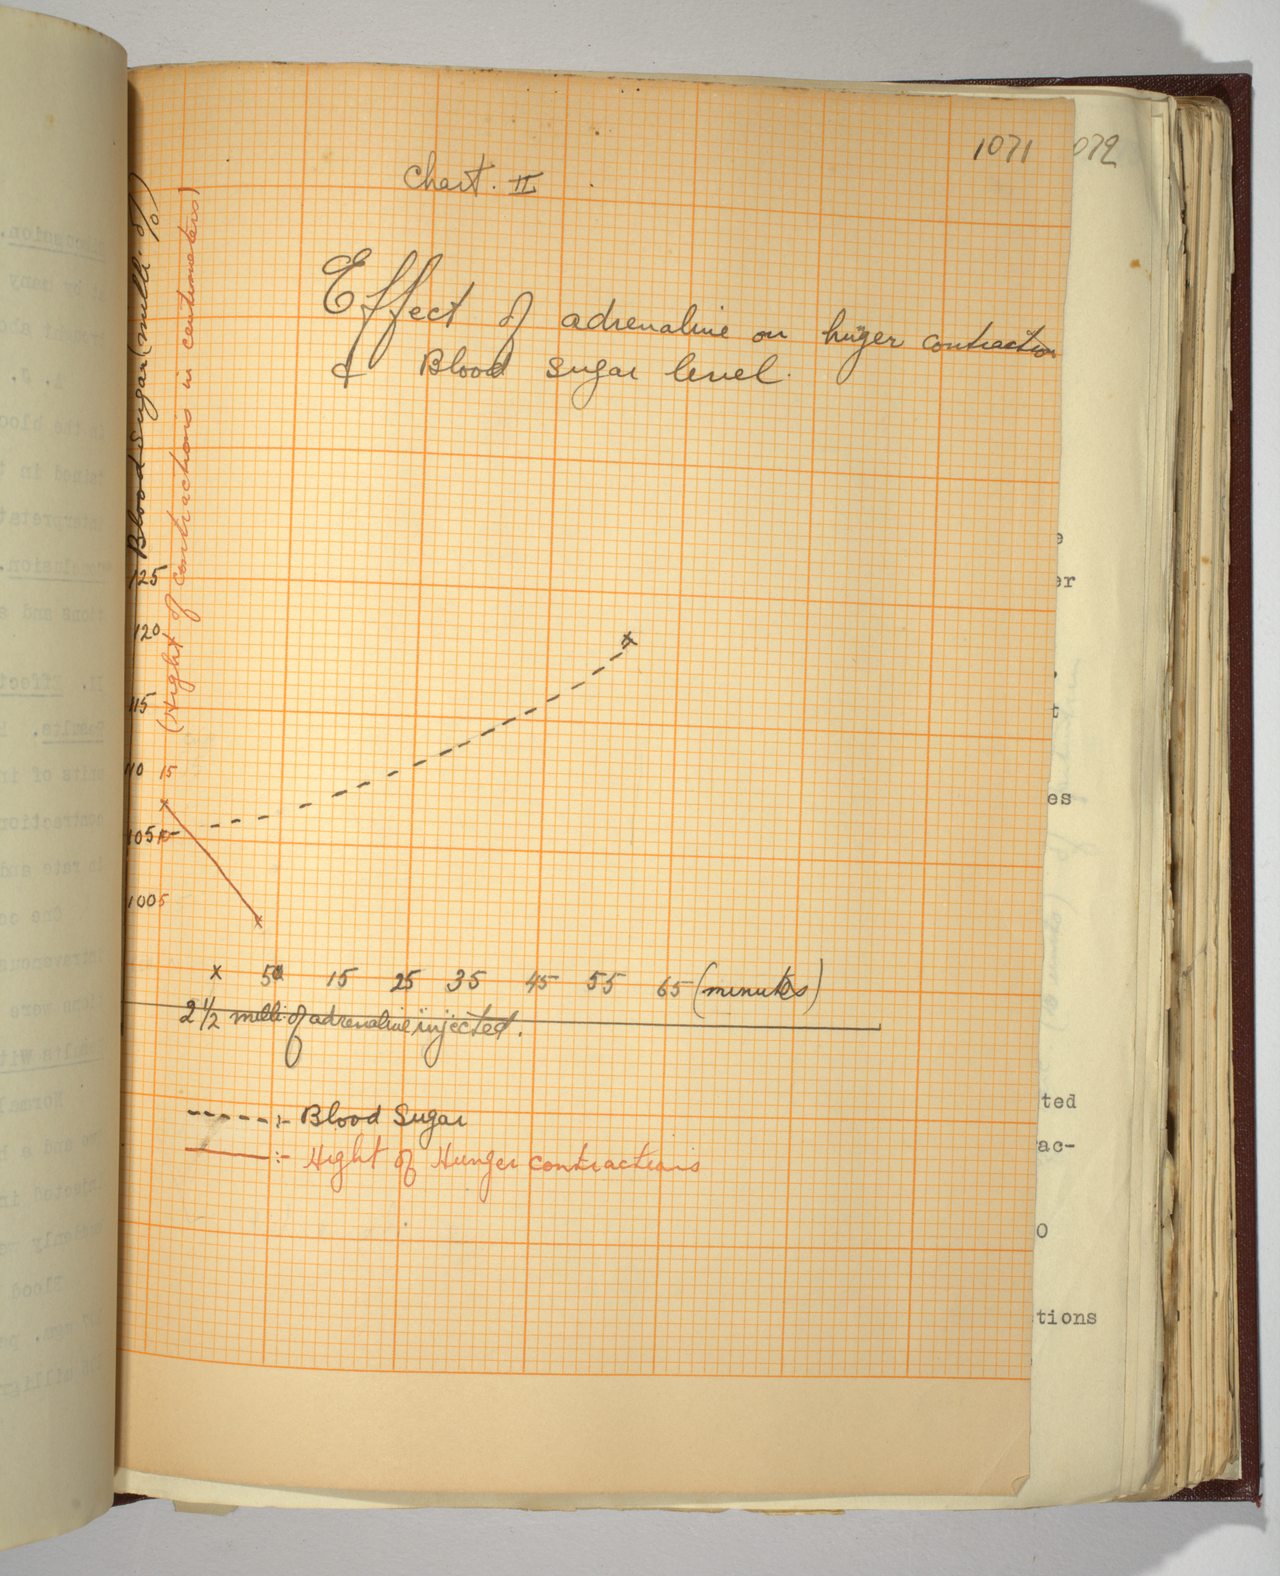 1071
072
Chart. II
Effect of adrenaline on huger contraction
& Blood Sugar level.
Blood Sugar (milli. of %)
(Hight of contractions in centimeters)
125
120
115
110 15
105 10
100 5
x 50 15 25 35 45 55 65 (minutes)
2 1/2 milli. of adrenaline injected.
:- Blood Sugar
:- Hight of Hunger contractions
er
t
es
ted
ac-
0
tions